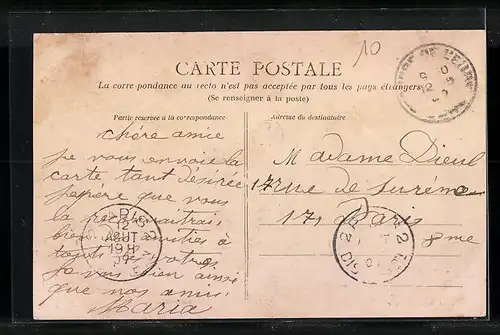 10
CARTE POSTALE
La correspondance au recto n'est pas acceptée par tous les pays étrangers
(Se renseigner à la poste)
Partie réservée à la correspondance
Adresse du destinataire
chère amie
je vous envoie la
carte tant désirée
j'espère que vous
la reconnaitrais
bien amitiés à
tous
je vous bien ainsi
que nos amis
Maria
Madame Dieul
17 rue de Surène
17 Paris
8me
PARIS
12
AOUT
19H
DE L'EURE
12
PARIS
2
DIS